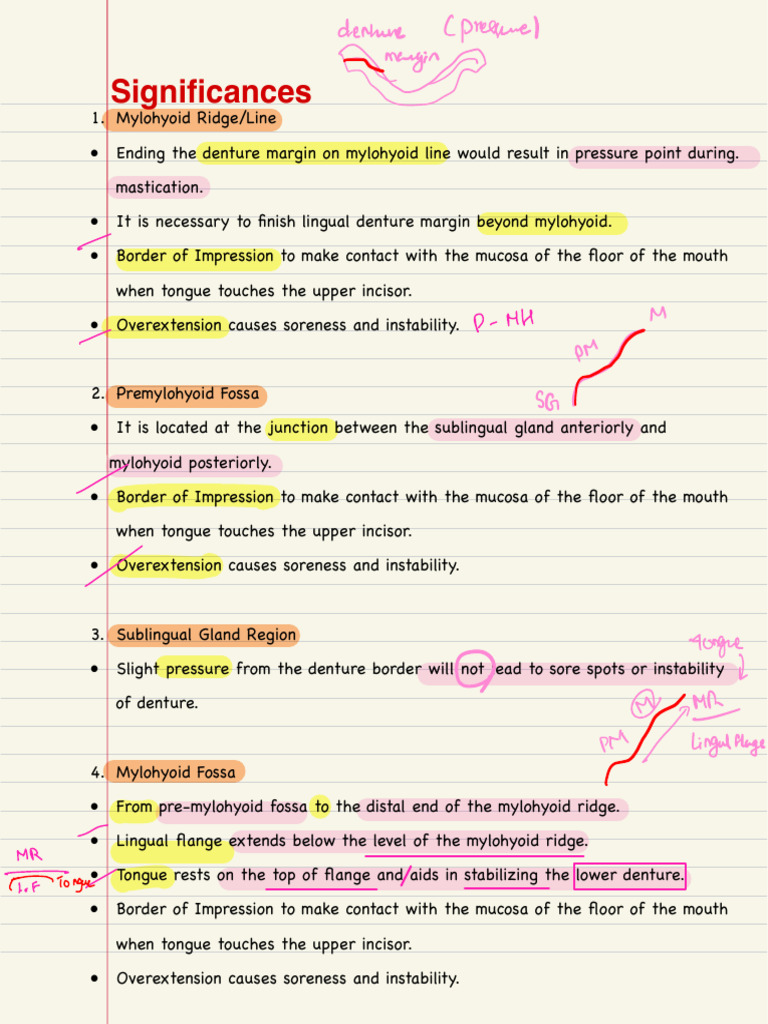 denture (pressure)
margin
Significances
1. Mylohyoid Ridge/Line
• Ending the denture margin on mylohyoid line would result in pressure point during.
mastication.
• It is necessary to finish lingual denture margin beyond mylohyoid.
• Border of Impression to make contact with the mucosa of the floor of the mouth
when tongue touches the upper incisor.
• Overextension causes soreness and instability. P-MH
M
PM
SG
2. Premylohyoid Fossa
• It is located at the junction between the sublingual gland anteriorly and
mylohyoid posteriorly.
• Border of Impression to make contact with the mucosa of the floor of the mouth
when tongue touches the upper incisor.
• Overextension causes soreness and instability.
3. Sublingual Gland Region
Tongue
• Slight pressure from the denture border will not lead to sore spots or instability
of denture.
M MR
PM Lingual flange
4. Mylohyoid Fossa
• From pre-mylohyoid fossa to the distal end of the mylohyoid ridge.
• Lingual flange extends below the level of the mylohyoid ridge.
MR
L.F Tongue
• Tongue rests on the top of flange and/aids in stabilizing the lower denture.
• Border of Impression to make contact with the mucosa of the floor of the mouth
when tongue touches the upper incisor.
• Overextension causes soreness and instability.